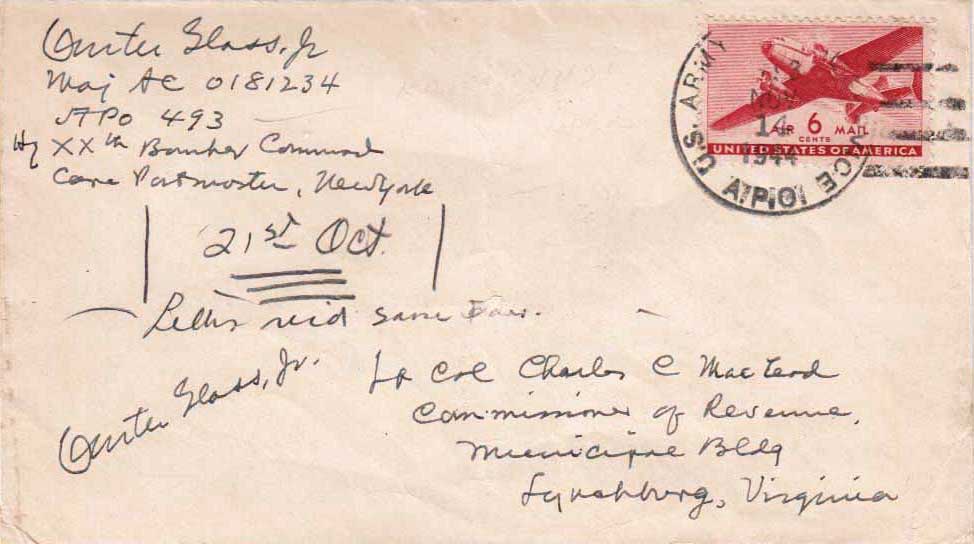 Carter Glass, Jr
Maj AC 0181234
APO 493
Hq XXth Bomber Command
Care Postmaster, New York
21st Oct.
Letters rec'd same
Carter Glass, Jr.
Lt Col Charles C MacLeod
Commissioner of Revenue,
Municipal Bldg
Lynchburg, Virginia
U.S. ARMY
NOV
14
1944
A.P.O.
AIR 6 MAIL
CENTS
UNITED STATES OF AMERICA